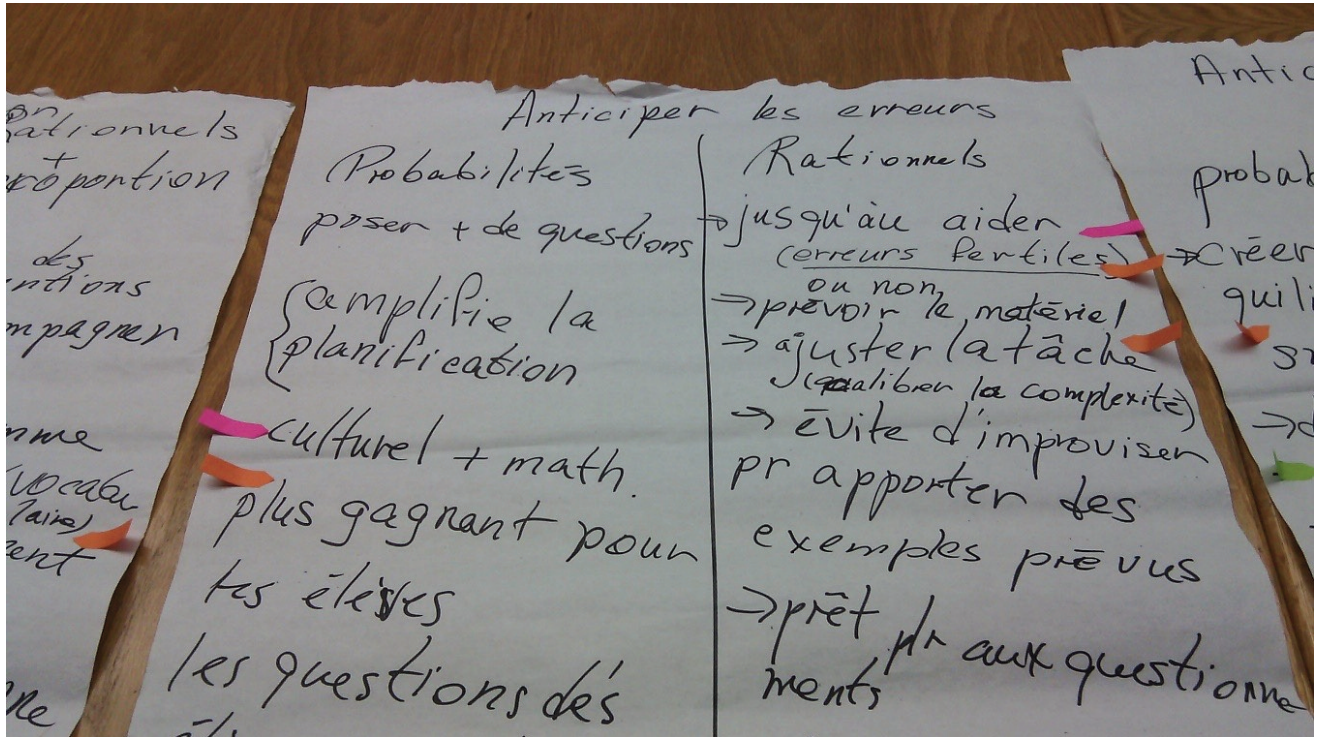 rationnels
+
proportion
des
mpagner
vocabu
laire)
Anticiper les erreurs
Probabilités
poser + de questions
amplifie la
planification
culturel + math.
plus gagnant pour
les élèves
les questions des
Rationnels
→ jusqu'àu aider
(erreurs fertiles)
ou non
→ prévoir le matériel
→ ajuster la tâche
(qalibrer la complexité)
→ évite d'improviser
pr apporter des
exemples prévus
→ prêt pr aux questionne
ments
Antic
probab
→ créer